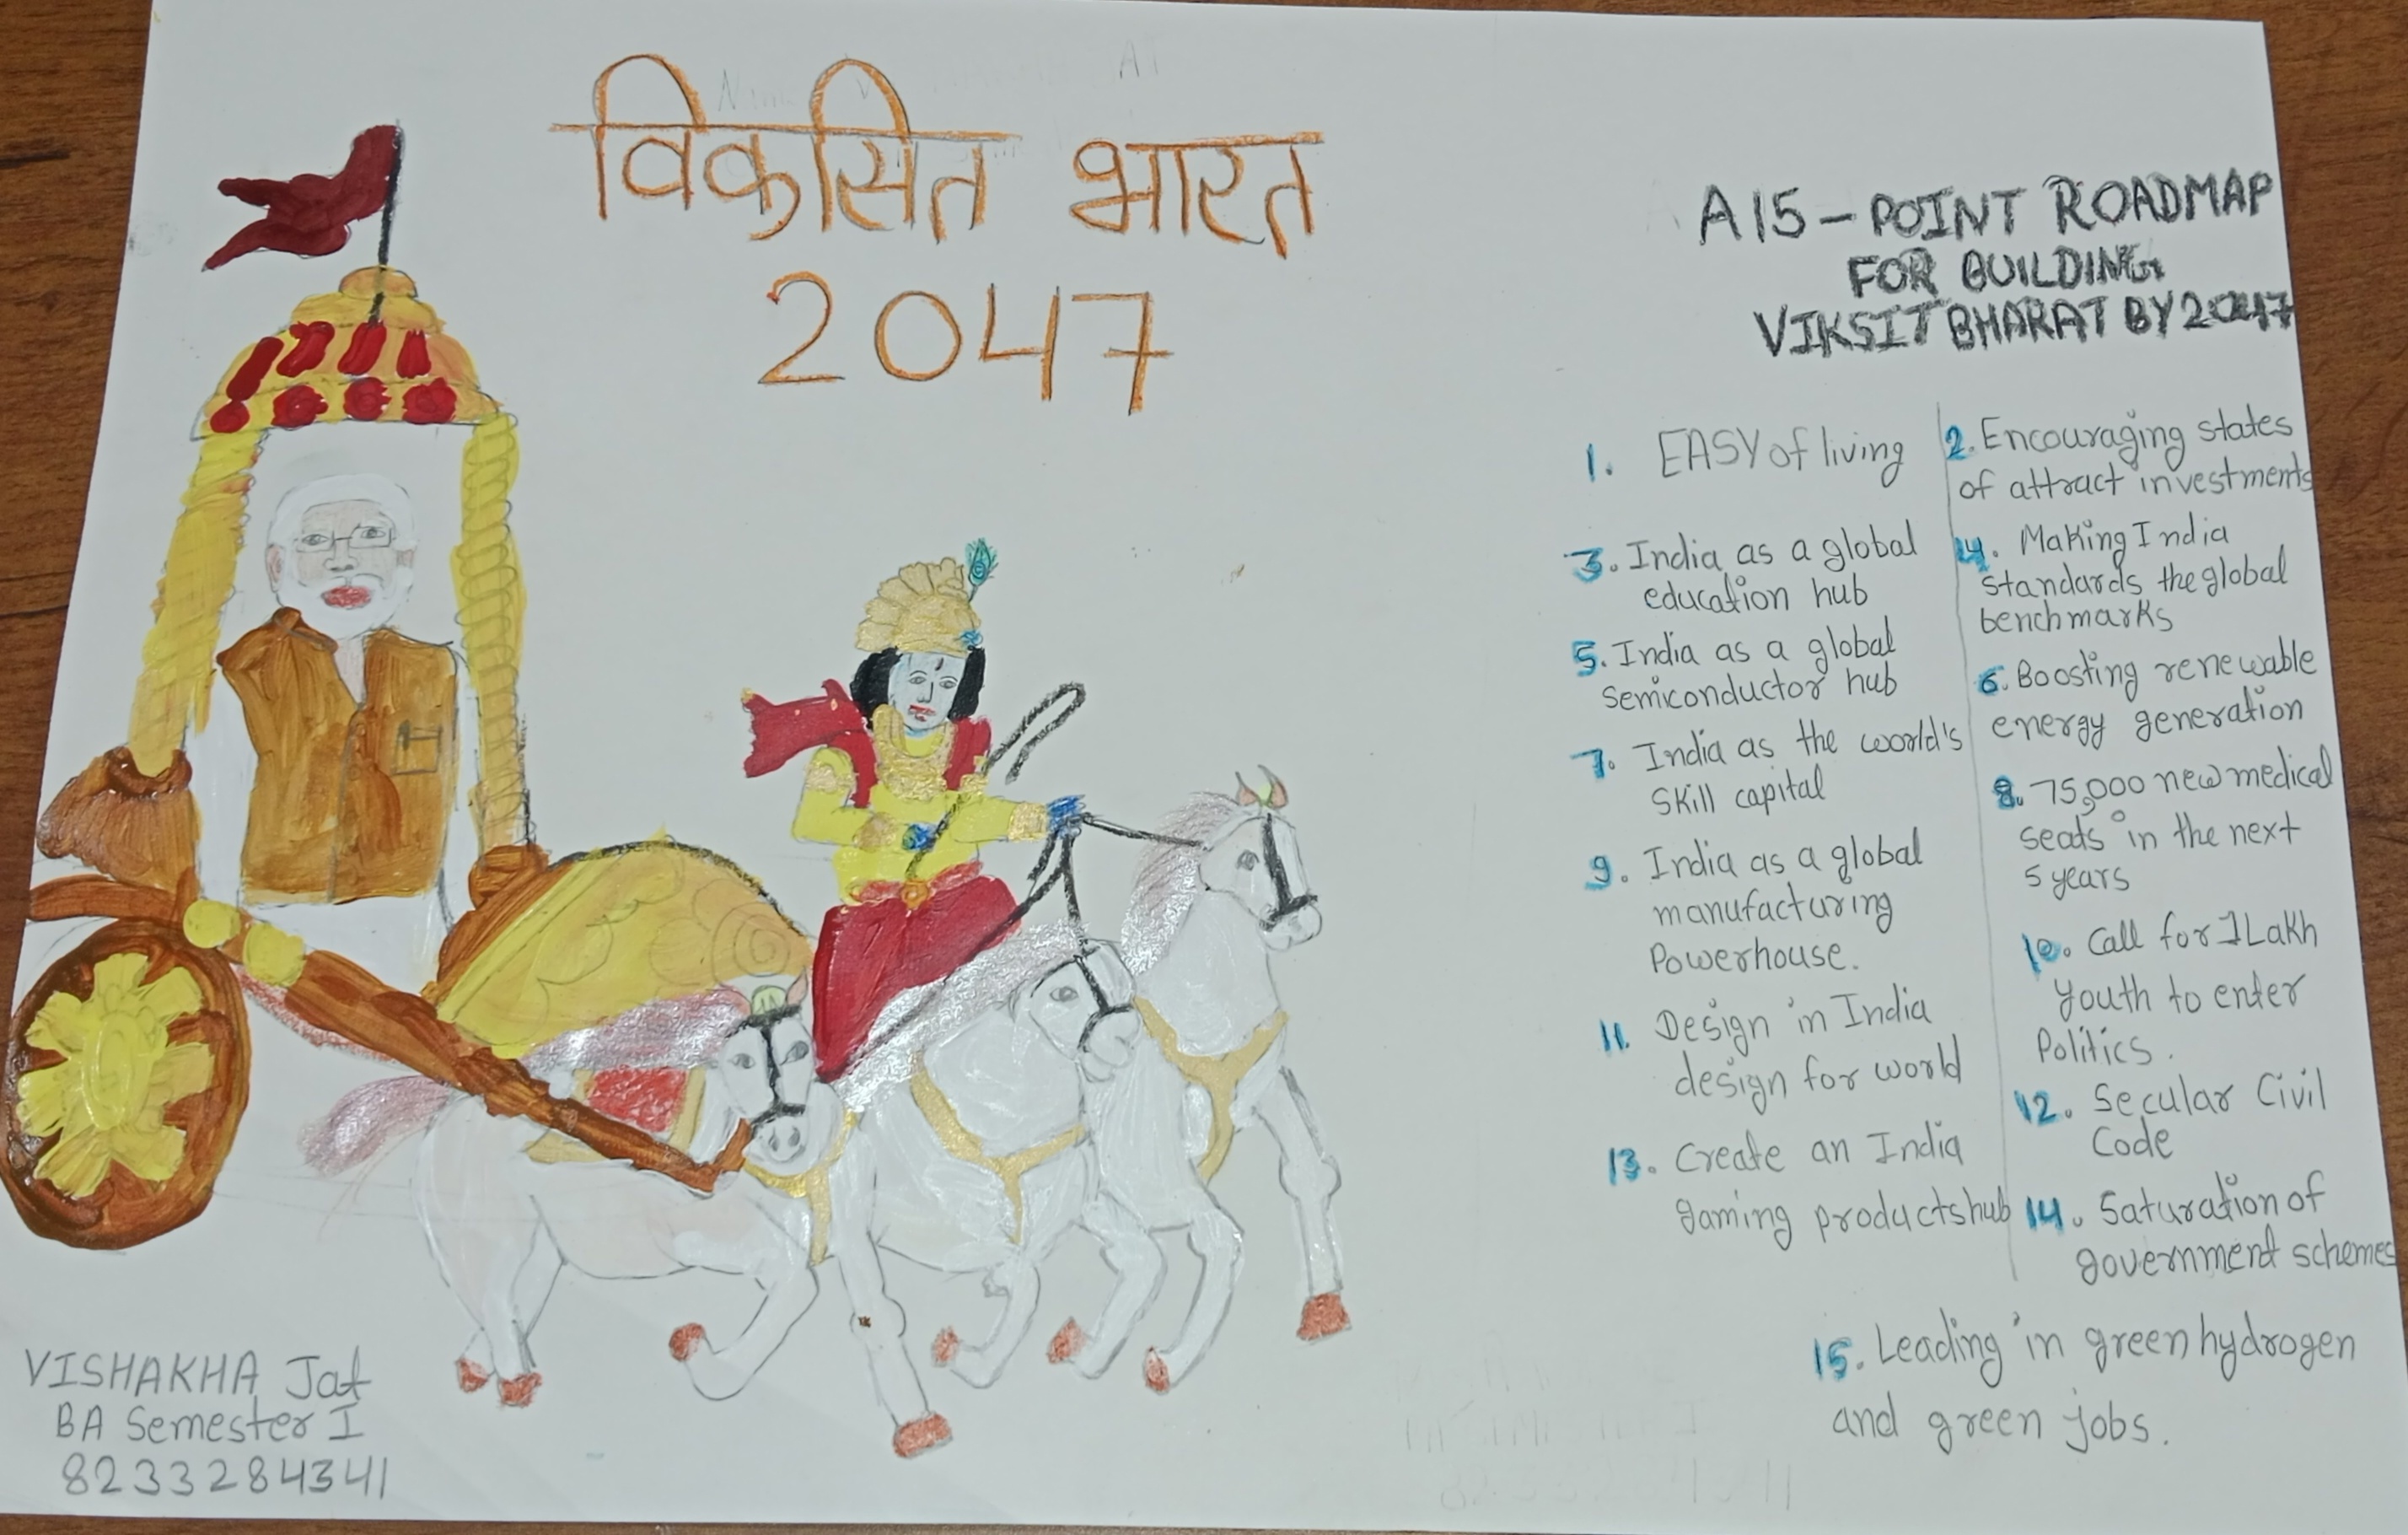 विकसित भारत
2047
A 15 - POINT ROADMAP
FOR BUILDING
VIKSIT BHARAT BY 2047
1. EASY of living
2. Encouraging states
of attract investments
3. India as a global
education hub
4. Making India
standards the global
benchmarks
5. India as a global
semiconductor hub
6. Boosting renewable
energy generation
7. India as the world's
Skill capital
8. 75,000 new medical
seats in the next
5 years
9. India as a global
manufacturing
Powerhouse.
10. Call for 1 Lakh
youth to enter
Politics.
11. Design in India
design for world
12. Secular Civil
Code
13. Create an India
gaming products hub
14. Saturation of
government schemes
15. Leading in green hydrogen
and green jobs.
VISHAKHA Jat
BA Semester I
8233284341